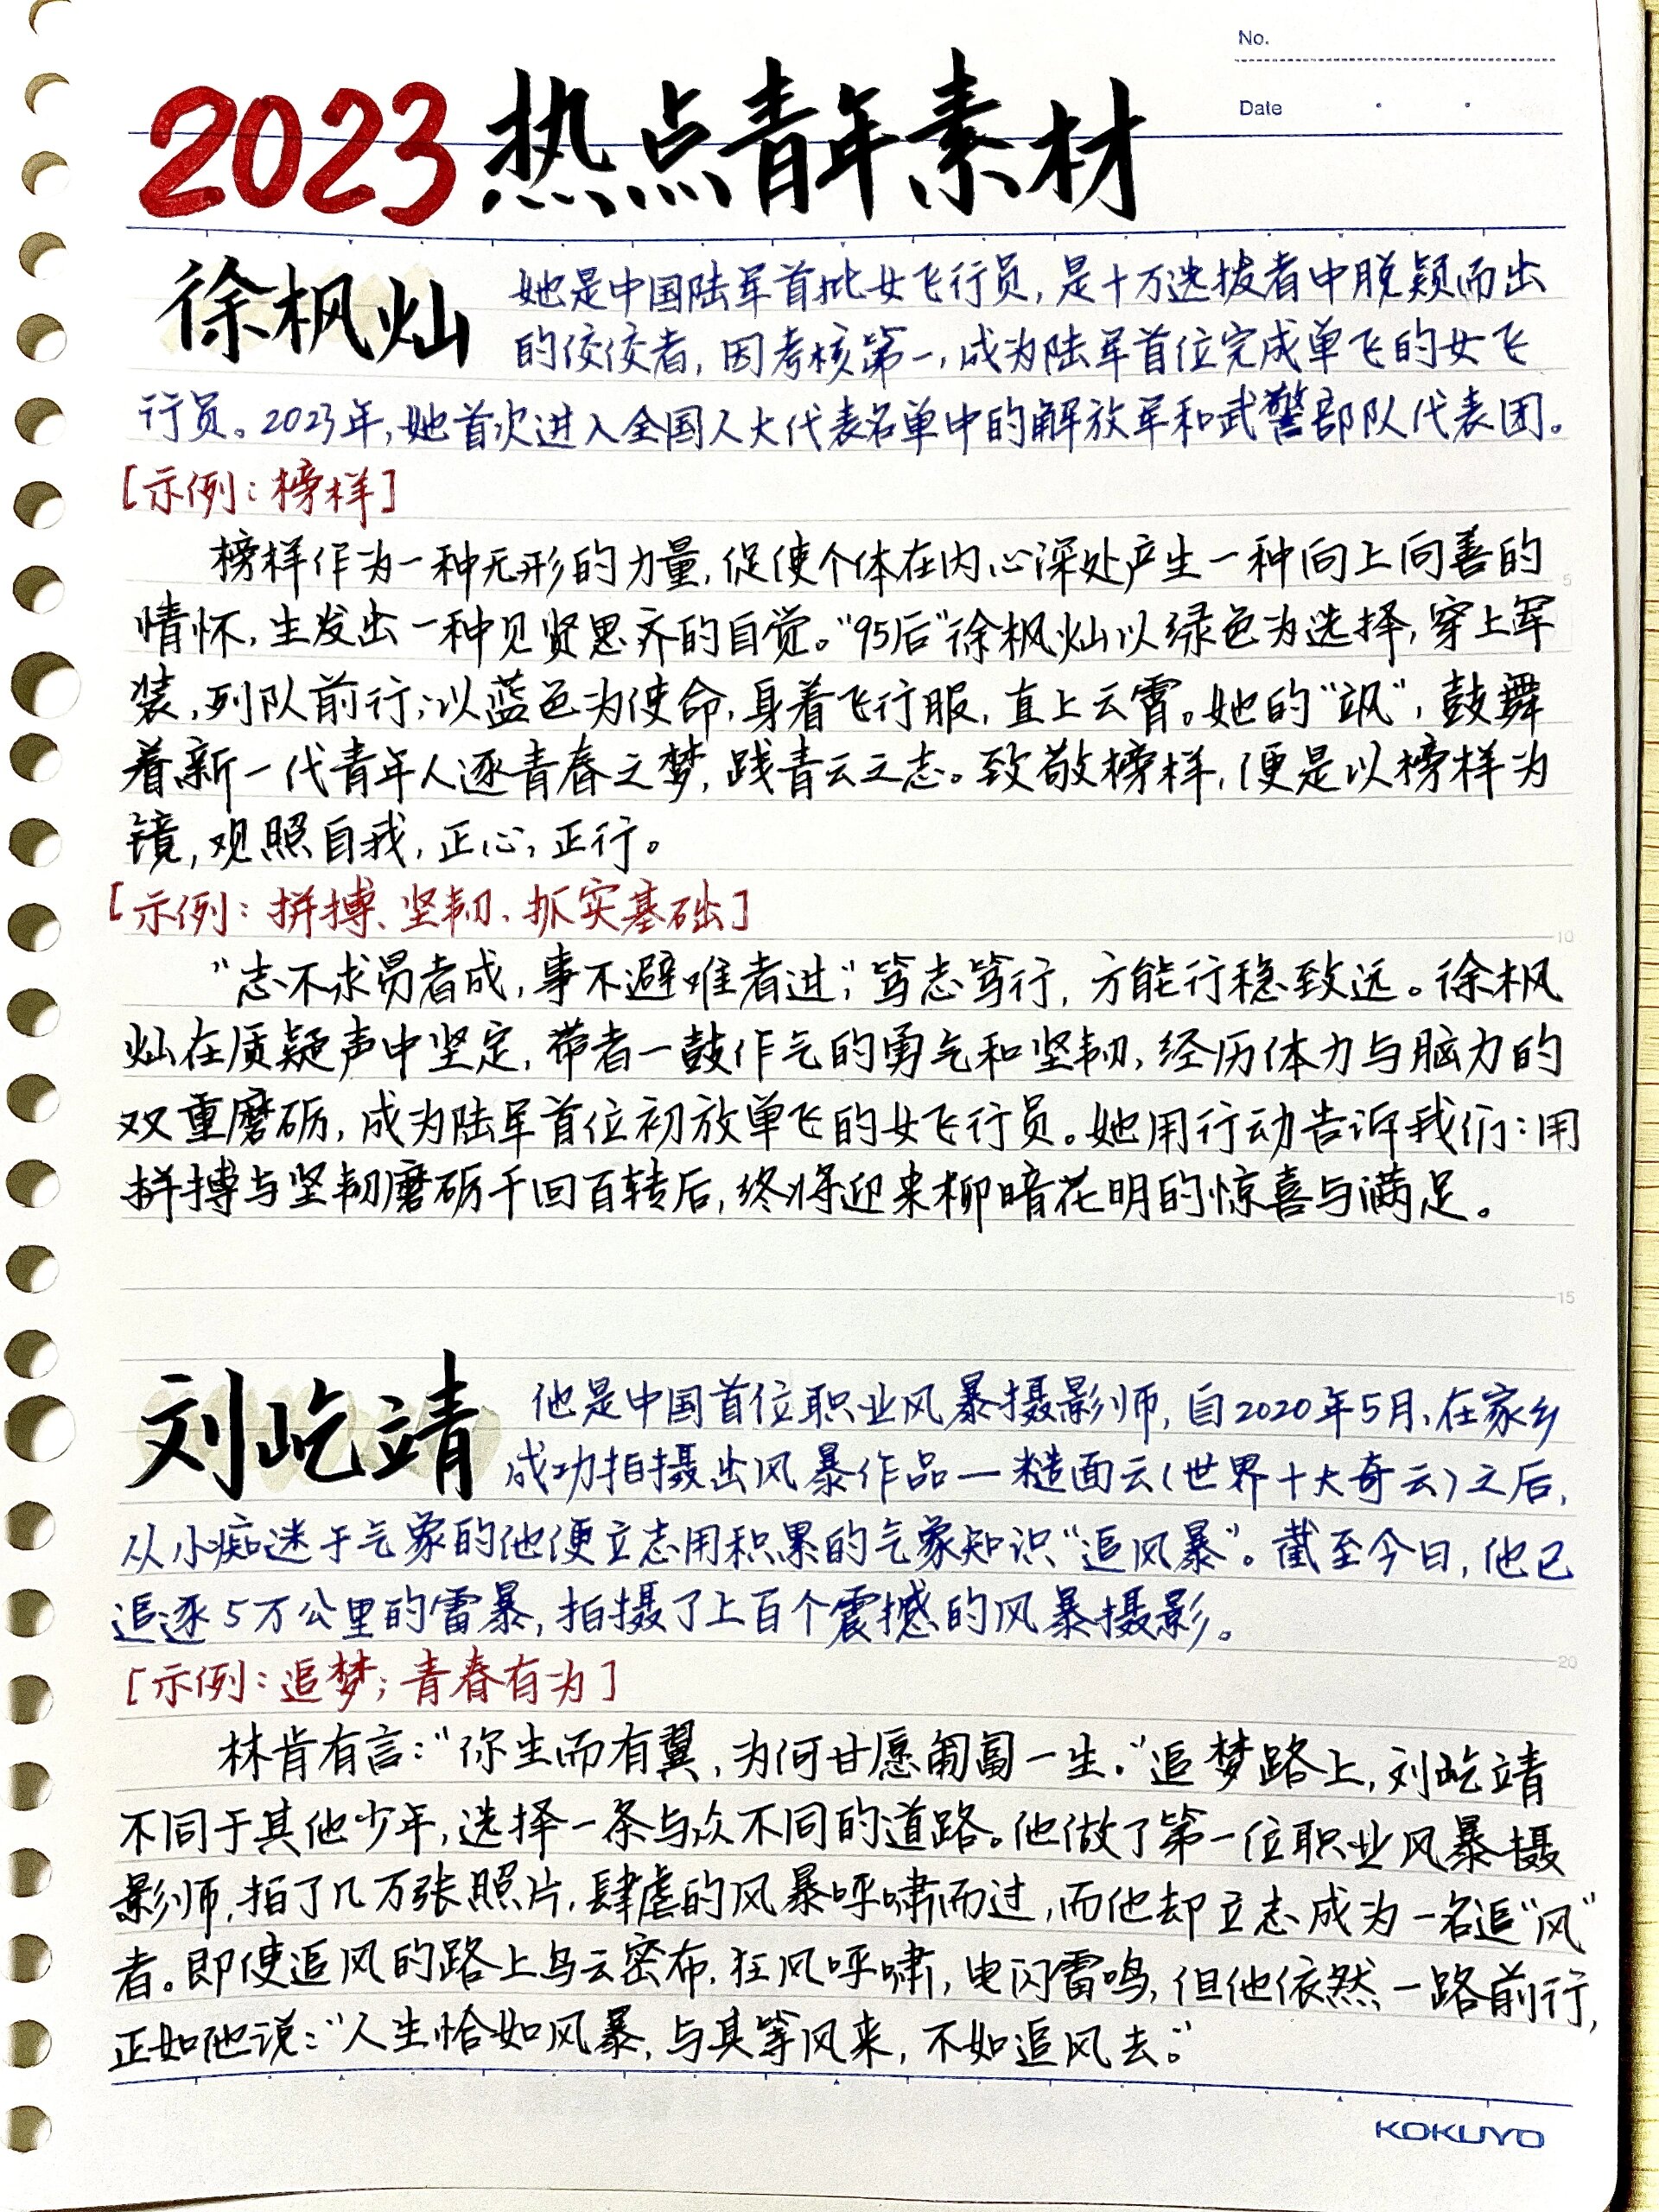 No.
Date
2023热点青年素材
徐枫灿
她是中国陆军首批女飞行员,是十万选拔者中脱颖而出
的佼佼者,因考核第一,成为陆军首位完成单飞的女飞
行员。2023年,她首次进入全国人大代表名单中的解放军和武警部队代表团。
[示例:榜样]
榜样作为一种无形的力量,促使个体在内心深处产生一种向上向善的
情怀,生发出一种见贤思齐的自觉。“95后”徐枫灿以绿色为选择,穿上军
装,列队前行;以蓝色为使命,身着飞行服,直上云霄。她的“飒”,鼓舞
着新一代青年人逐青春之梦,践青云之志。致敬榜样,便是以榜样为
镜,观照自我,正心,正行。
[示例:拼搏、坚韧、抓实基础]
“志不求易者成,事不避难者进;”笃志笃行,方能行稳致远。徐枫
灿在质疑声中坚定,带着一鼓作气的勇气和坚韧,经历体力与脑力的
双重磨砺,成为陆军首位初放单飞的女飞行员。她用行动告诉我们:用
拼搏与坚韧磨砺千回百转后,终将迎来柳暗花明的惊喜与满足。
刘屹靖
他是中国首位职业风暴摄影师,自2020年5月,在家乡
成功拍摄出风暴作品—糙面云(世界十大奇云)之后,
从小痴迷于气象的他便立志用积累的气象知识“追风暴”。截至今日,他已
追逐5万公里的雷暴,拍摄了上百个震撼的风暴摄影。
[示例:追梦;青春有为]
林肯有言:“你生而有翼,为何甘愿匍匐一生。”追梦路上,刘屹靖
不同于其他少年,选择一条与众不同的道路。他做了第一位职业风暴摄
影师,拍了几万张照片,肆虐的风暴呼啸而过,而他却立志成为一名追“风”
者。即使追风的路上乌云密布,狂风呼啸,电闪雷鸣,但他依然一路前行,
正如他说:“人生恰如风暴,与其等风来,不如追风去。”
5
10
15
20
KOKUYO